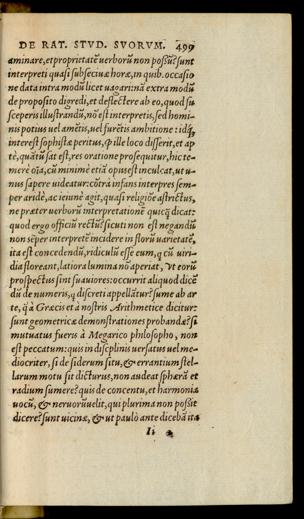 DE RAT. STVD. SVORVM. 499
aminare, et proprietatē verborū non possū? sunt
interpreti quasi subseciuæ horæ, in quib. occasio
ne data intra modū licet uagari: nā extra modū
de proposito digredi, et deflectere ab eo, quod su
sceperis illustrandū, nō est interpretis, sed homi-
nis potius uel amētis, uel furētis ambitione: idq́;
interest sophistæ peritus, & ille loco disserit, et ap
tè, quātū sat est, res oratione prosequitur, hic te-
merè oīa, cū minimè etiā opus est inculcat, ut u-
nus sapere uideatur: cōtrà infans interpres sem-
per aridè, ac ieiunè agit, quasi religiōe astrictus,
ne præter uerborū interpretationē quicq̄ dicat:
quod ergo officiū rectū? sicuti non est negandū
non sēper interpretē incidere in florū varietatē,
ita est concedendū, ridiculū esse eum, q cū uiri-
dia floreant, latiora lumina nō aperiat, Vt eorū
prospectus sint suauiores: occurrit aliquod dicē
dū de numeris, q discreti appellātur? sume ab ar
te, q̄ à Græcis et à nostris Arithmetice dicitur:
sunt geometricæ demonstrationes probandæ? si
mutuatus fueris à Megarico philosopho, non
est peccatum: quis in discplinis versatus uel me-
diocriter, si de siderum situ, & errantium stel-
larum motu sit dicturus, non audeat sphærā et
radium sumere? quis de concentu, et harmonia
uocū, & neruorū uelit, qui plurima non possit
dicere? sunt uicinæ, & ut paulò ante dicebā ita
Ii